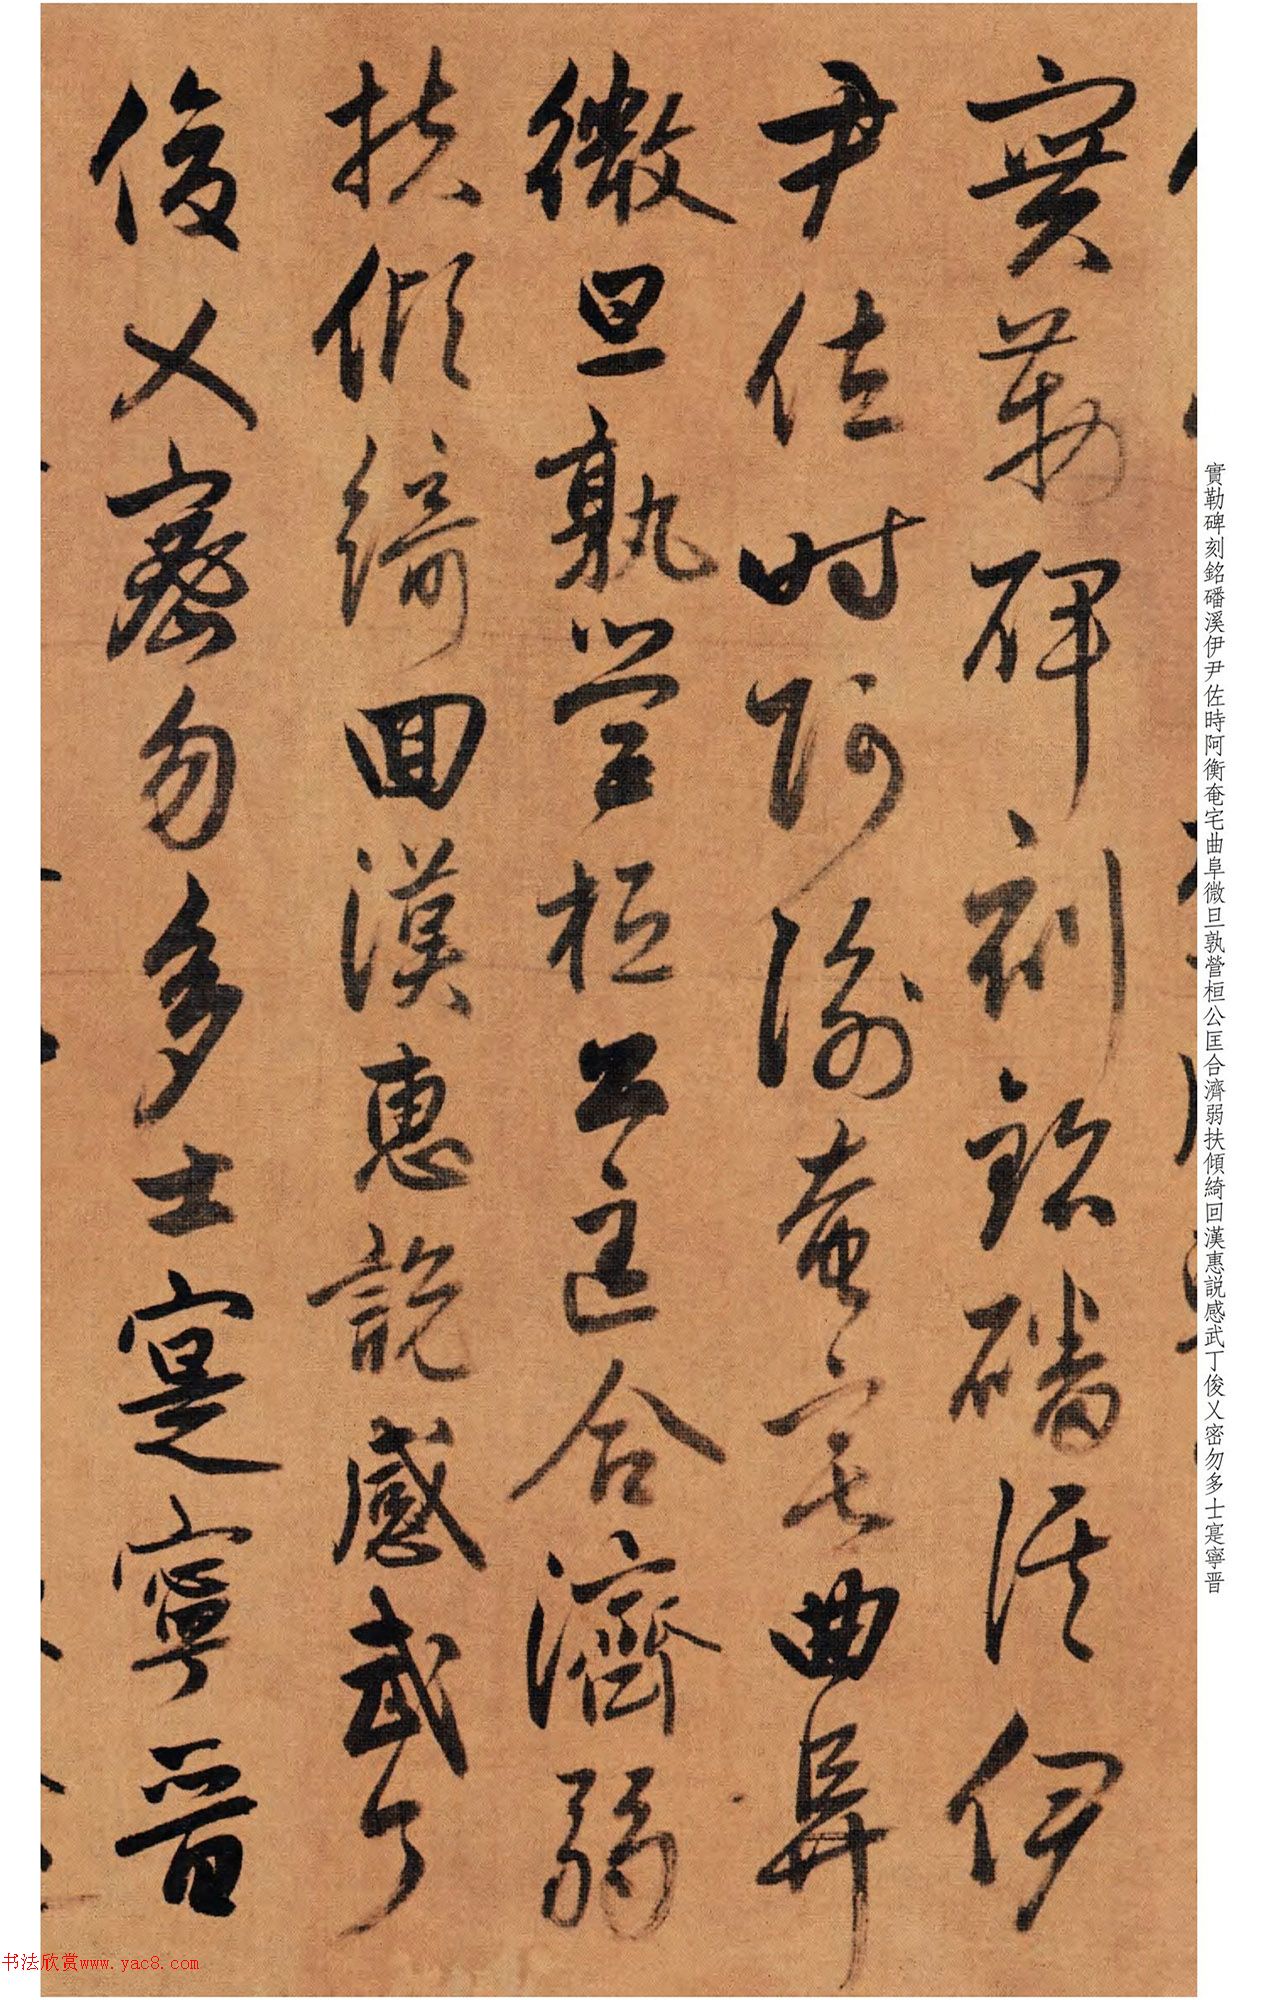 實勒碑刻銘磻溪伊
尹佐時阿衡奄宅曲阜
微旦孰營桓公匡合濟弱
扶傾綺回漢惠説感武丁
俊乂密勿多士寔寧晋
實勒碑刻銘磻溪伊尹佐時阿衡奄宅曲阜微旦孰營桓公匡合濟弱扶傾綺回漢惠説感武丁俊乂密勿多士寔寧晋
书法欣赏www.yac8.com